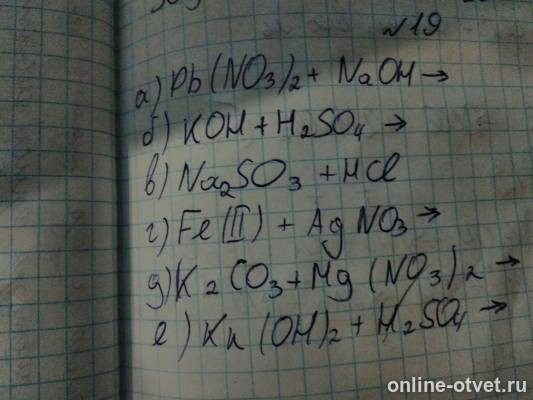 №19
а) Pb(NO₃)₂ + NaOH →
б) KOH + H₂SO₄ →
в) Na₂SO₃ + HCl
г) Fe(II) + AgNO₃ →
д) K₂CO₃ + Mg(NO₃)₂ →
е) Kn(OH)₂ + H₂SO₄ →
online-otvet.ru